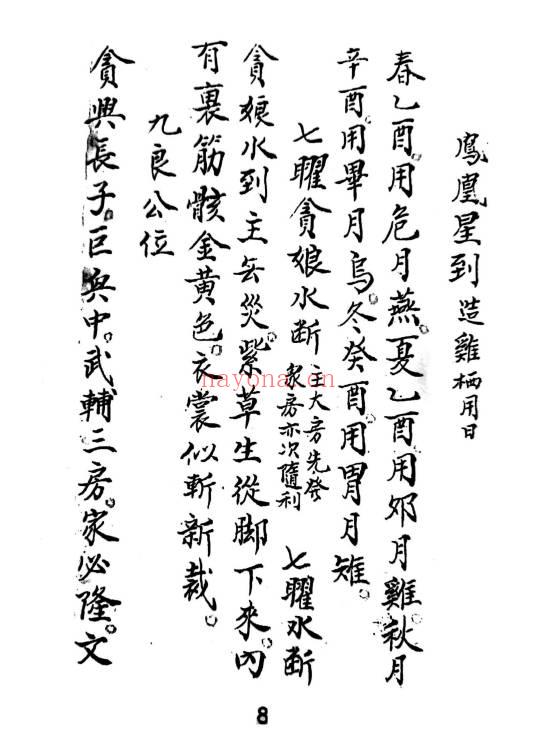 鳳凰星到 造雞栖用日
春乙酉。用危月燕。夏乙酉用昴月雞。秋月
辛酉。用畢月烏。冬癸酉。用胃月雉。
七曜貪娘水斷 主大房先發 衆房亦次隨利 七曜水断
貪娘水到主無災。紫草生從脚下來。內
有裏筋骸金黄色。衣裳似斬新裁。
九良公位
貪興長子。巨興中。武輔三房。家必隆。文
hayonai.cn
8